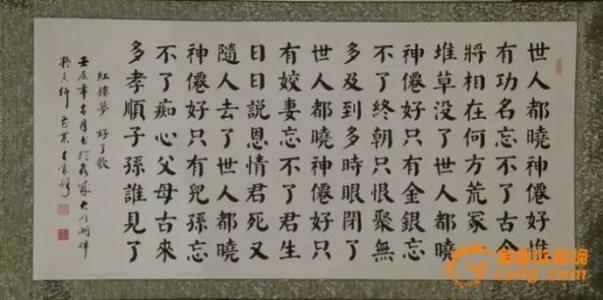 世人都曉神僊好惟
有功名忘不了古今
將相在何方荒冢一
堆草没了世人都曉
神僊好只有金銀忘
不了終朝只恨聚無
多及到多時眼閉了
世人都曉神僊好只
有姣妻忘不了君生
日日説恩情君死又
隨人去了世人都曉
神僊好只有兒孫忘
不了痴心父母古來
多孝順子孫誰見了
紅樓夢 好了歌
壬辰年